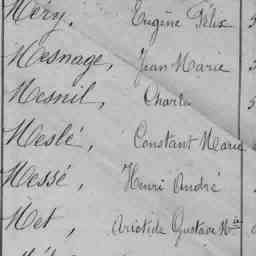 Méry, Eugène Félix 5
Mesnage, Jean Marie 3
Mesnil, Charles 5
Meslé, Constant Marie
Messé, Henri André
Met, Aristide Gustave Mie